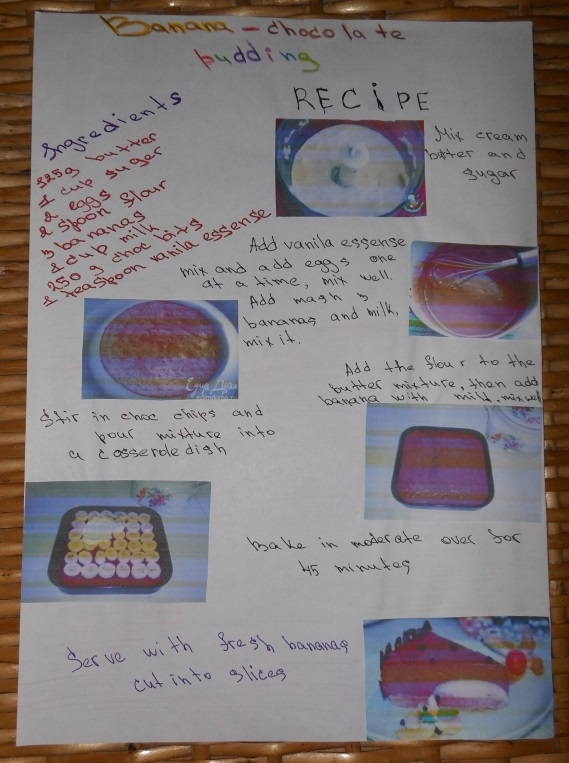 Banana - chocolate
pudding
RECIPE
Ingredients
125g butter
1 cup suger
2 eggs
2 spoon flour
3 bananas
1 cup milk
250 g choc bits
1 teaspoon vanila essense
Mix cream
butter and
sugar
Add vanila essense
mix and add eggs one
at a time, mix well.
Add mash 3
bananas and milk,
mix it.
Add the flour to the
butter mixture, then add
banana with milk, mix well
Stir in choc chips and
pour mixture into
a cosserole dish
Bake in moderate over for
45 minutes
Serve with fresh bananas
cut into slices